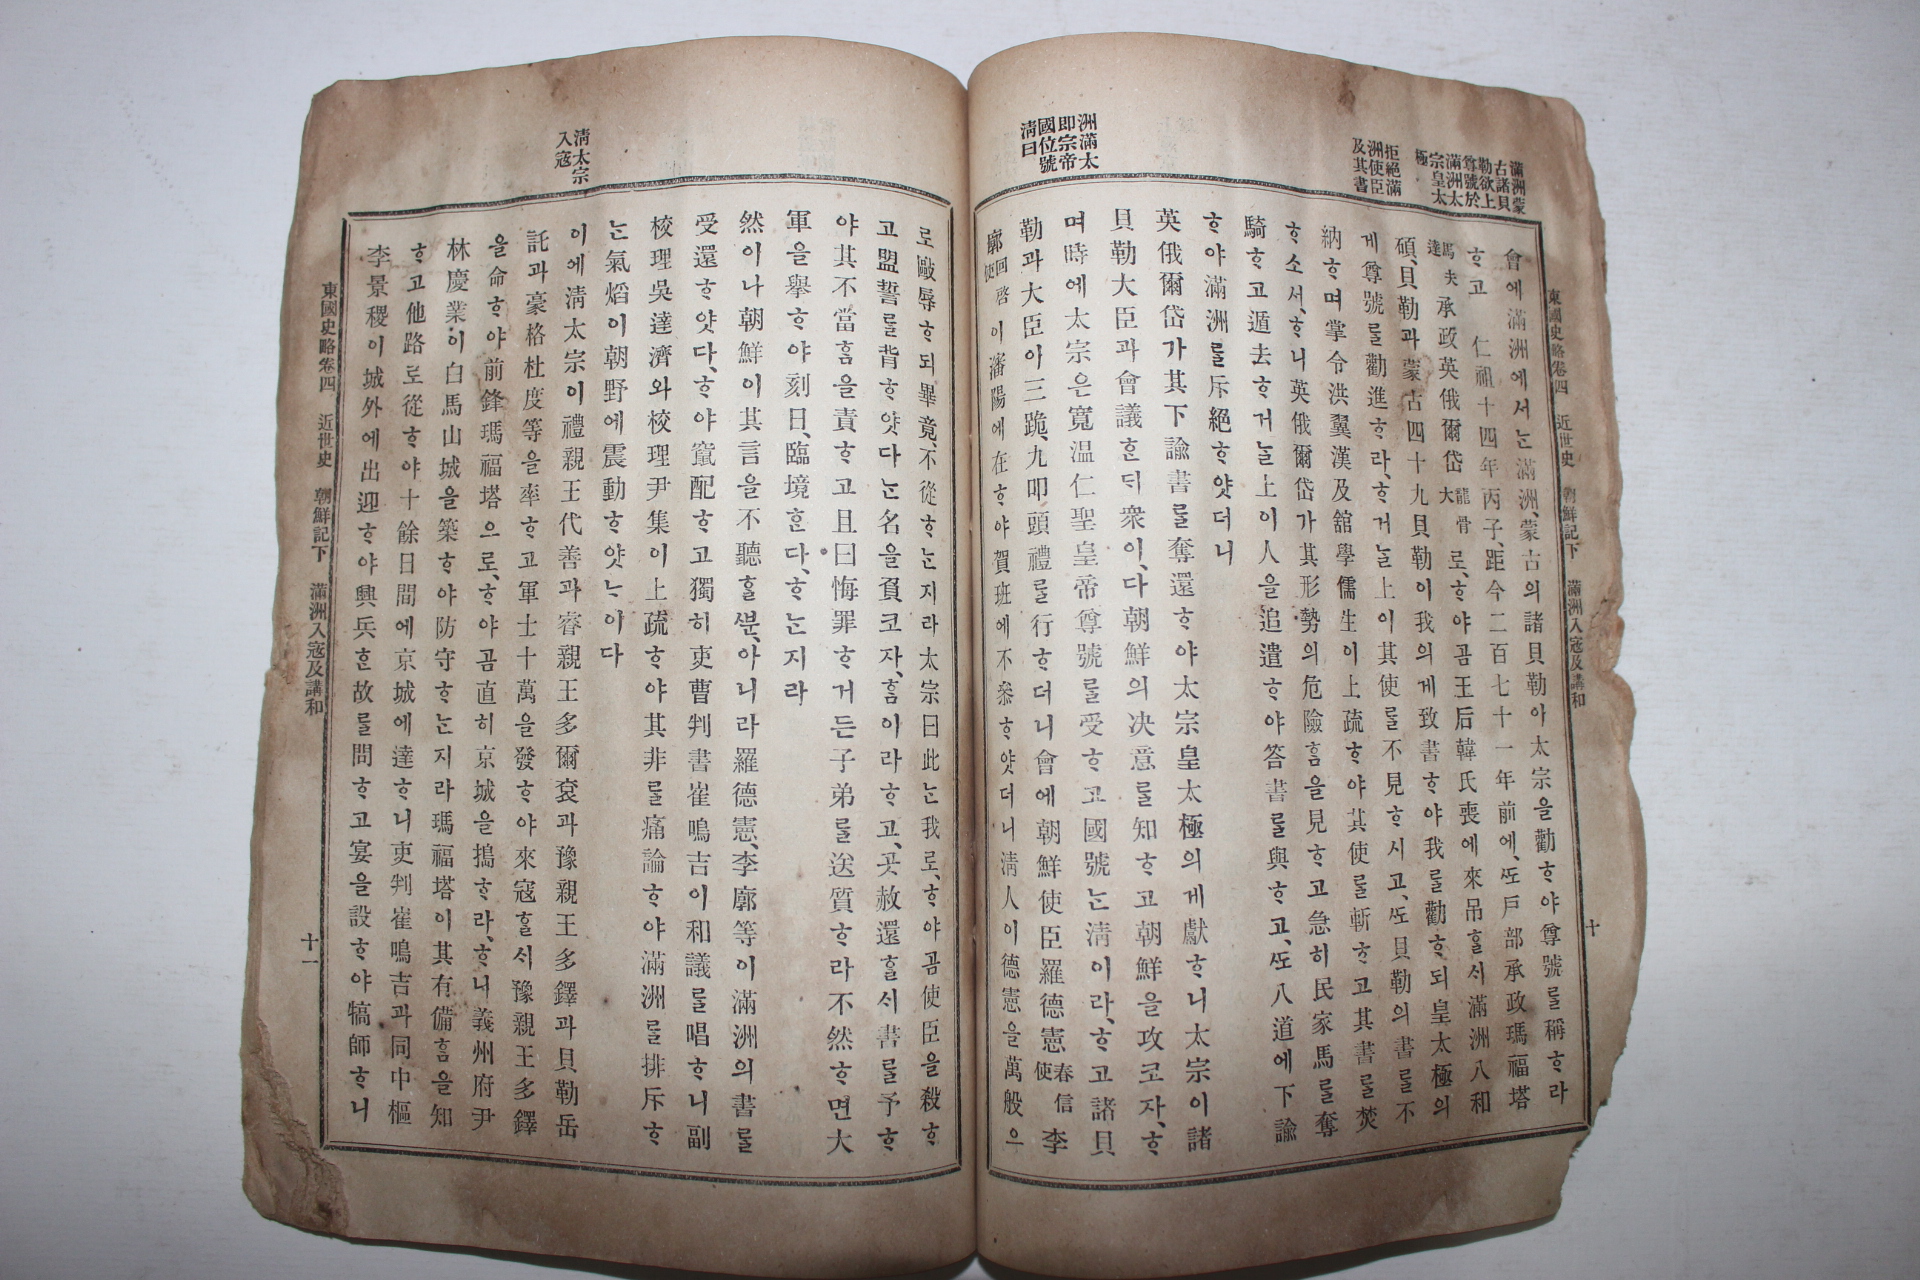 東國史略卷四 近世史 朝鮮記下 滿洲入寇及講和 十
滿洲蒙
古諸貝
勒欲上
尊號於
滿洲太
宗皇太
極
拒絕滿
洲使臣
及其書
洲滿太
即宗帝
國位號
淸曰
會에滿洲에셔ᄂᆞᆫ滿洲、蒙古의諸貝勒아太宗을勸ᄒᆞ야尊號를稱ᄒᆞ라
ᄒᆞ고 仁祖十四年丙子、距今二百七十一年前에、ᄯᅩ戶部承政瑪福塔
馬夫達承政英俄爾岱龍骨大로、ᄒᆞ야곰王后韓氏喪에來吊ᄒᆞᆯᄉᆡ滿洲八和
碩、貝勒과蒙古四十九貝勒이我의게致書ᄒᆞ야我를勸ᄒᆞ되皇太極의
게尊號를勸進ᄒᆞ라、ᄒᆞ거ᄂᆞᆯ上이其使를不見ᄒᆞ시고、ᄯᅩ貝勒의書를不
納ᄒᆞ며掌令洪翼漢及舘學儒生이上疏ᄒᆞ야其使를斬ᄒᆞ고其書를焚
ᄒᆞ소셔、ᄒᆞ니英俄爾岱가其形勢의危險ᄒᆞᆷ을見ᄒᆞ고急히民家馬를奪
騎ᄒᆞ고遁去ᄒᆞ거ᄂᆞᆯ上이人을追遣ᄒᆞ야答書를與ᄒᆞ고、ᄯᅩ八道에下諭
ᄒᆞ야滿洲를斥絕ᄒᆞ얏더니
英俄爾岱가其下諭書를奪還ᄒᆞ야太宗皇太極의게獻ᄒᆞ니太宗이諸
貝勒大臣과會議ᄒᆞᆫᄃᆡ衆이、다朝鮮의决意를知ᄒᆞ고朝鮮을攻코자、ᄒᆞ
며時에太宗은寬温仁聖皇帝尊號를受ᄒᆞ고國號ᄂᆞᆫ淸이라、ᄒᆞ고諸貝
勒과大臣이三跪、九叩頭禮를行ᄒᆞ더니會에朝鮮使臣羅德憲春信使李
廓回啓使이瀋陽에在ᄒᆞ야賀班에不叅ᄒᆞ얏더니淸人이德憲을萬般으
淸太宗
入寇
로毆辱ᄒᆞ되畢竟、不從ᄒᆞᄂᆞᆫ지라太宗曰此ᄂᆞᆫ我로、ᄒᆞ야곰使臣을殺ᄒᆞ
고盟誓를背ᄒᆞ얏다ᄂᆞᆫ名을負코자、ᄒᆞᆷ이라ᄒᆞ고、곳赦還ᄒᆞᆯᄉᆡ書를予ᄒᆞ
야其不當ᄒᆞᆷ을責ᄒᆞ고且曰悔罪ᄒᆞ거든子弟를送質ᄒᆞ라不然ᄒᆞ면大
軍을擧ᄒᆞ야刻日、臨境ᄒᆞᆫ다、ᄒᆞᄂᆞᆫ지라
然이나朝鮮이其言을不聽ᄒᆞᆯᄲᅮᆫ、아니라羅德憲、李廓等이滿洲의書를
受還ᄒᆞ얏다、ᄒᆞ야竄配ᄒᆞ고獨히吏曹判書崔鳴吉이和議를唱ᄒᆞ니副
校理吳達濟와校理尹集이上疏ᄒᆞ야其非를痛論ᄒᆞ야滿洲를排斥ᄒᆞ
ᄂᆞᆫ氣焰이朝野에震動ᄒᆞ얏ᄂᆞ이다
이에淸太宗이禮親王代善과睿親王多爾袞과豫親王多鐸과貝勒岳
託과豪格杜度等을率ᄒᆞ고軍士十萬을發ᄒᆞ야來寇ᄒᆞᆯᄉᆡ豫親王多鐸
을命ᄒᆞ야前鋒瑪福塔으로、ᄒᆞ야곰直히京城을搗ᄒᆞ라、ᄒᆞ니義州府尹
林慶業이白馬山城을築ᄒᆞ야防守ᄒᆞᄂᆞᆫ지라瑪福塔이其有備ᄒᆞᆷ을知
ᄒᆞ고他路로從ᄒᆞ야十餘日間에京城에達ᄒᆞ니吏判崔鳴吉과同中樞
李景稷이城外에出迎ᄒᆞ야興兵ᄒᆞᆫ故를問ᄒᆞ고宴을設ᄒᆞ야犒師ᄒᆞ니
東國史略卷四 近世史 朝鮮記下 滿洲入寇及講和 十一